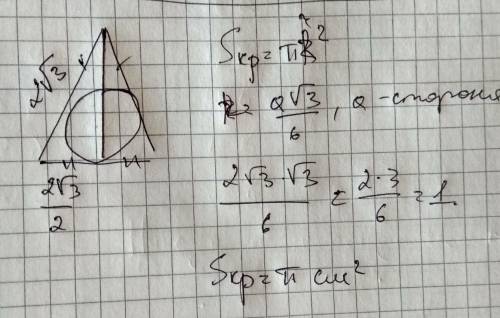 2√3
2√3/2
Sкр = πr²
r = a√3/6, a - сторона
2√3·√3/6 = 2·3/6 = 1
Sкр = π см²